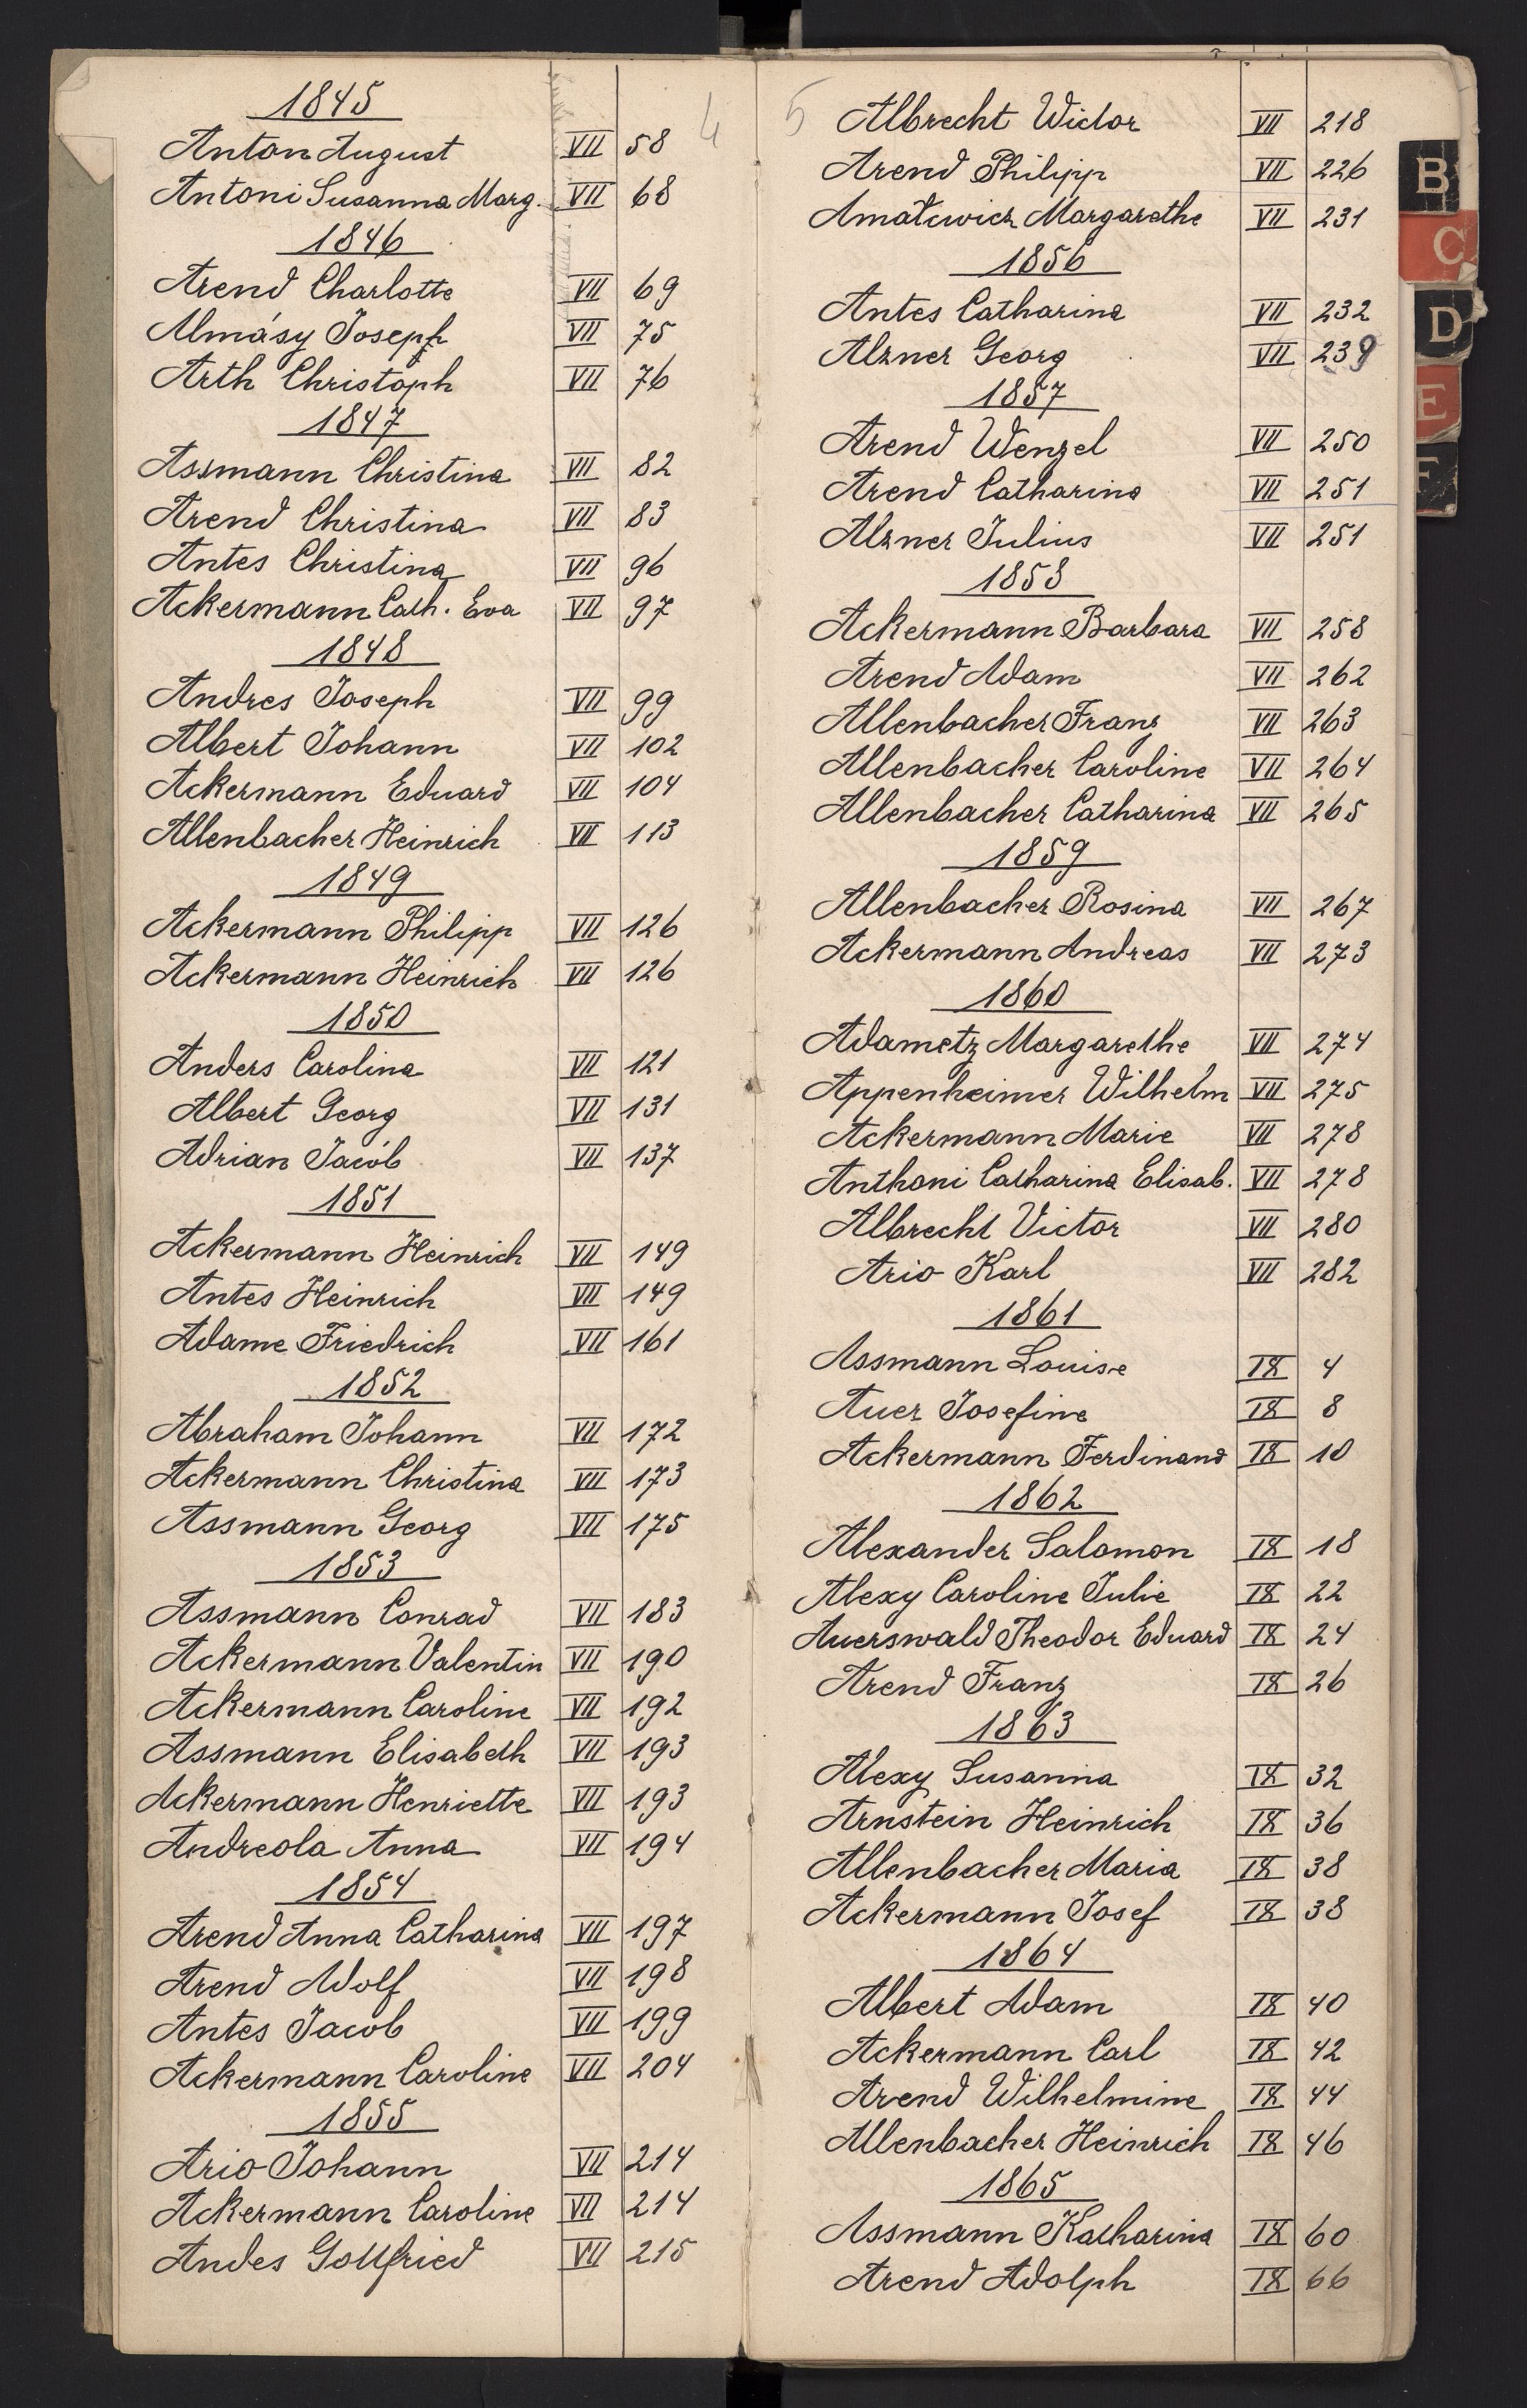 4
1845
Anton August VII 58
Antoni Susanna Marg. VII 68
1846
Arend Charlotte VII 69
Almásy Joseph VII 75
Arth Christoph VII 76
1847
Assmann Christina VII 82
Arend Christina VII 83
Antes Christina VII 96
Ackermann Cath. Eva VII 97
1848
Andres Joseph VII 99
Albert Johann VII 102
Ackermann Eduard VII 104
Allenbacher Heinrich VII 113
1849
Ackermann Philipp VII 126
Ackermann Heinrich VII 126
1850
Anders Carolina VII 121
Albert Georg VII 131
Adrian Jacob VII 137
1851
Ackermann Heinrich VII 149
Antes Heinrich VII 149
Adame Friedrich VII 161
1852
Abraham Johann VII 172
Ackermann Christina VII 173
Assmann Georg VII 175
1853
Assmann Conrad VII 183
Ackermann Valentin VII 190
Ackermann Caroline VII 192
Assmann Elisabeth VII 193
Ackermann Henriette VII 193
Andreola Anna VII 194
1854
Arend Anna Catharina VII 197
Arend Adolf VII 198
Antes Jacob VII 199
Ackermann Caroline VII 204
1855
Ario Johann VII 214
Ackermann Caroline VII 214
Andes Gottfried VII 215
5
Albrecht Wictor VII 218
Arend Philipp VII 226
Amatewicz Margarethe VII 231
1856
Antes Catharina VII 232
Alzner Georg VII 239
1857
Arend Wenzel VII 250
Arend Catharina VII 251
Alzner Julius VII 251
1858
Ackermann Barbara VII 258
Arend Adam VII 262
Allenbacher Franz VII 263
Allenbacher Caroline VII 264
Allenbacher Catharina VII 265
1859
Allenbacher Rosina VII 267
Ackermann Andreas VII 273
1860
Adametz Margarethe VII 274
Appenheimer Wilhelm VII 275
Ackermann Marie VII 278
Anthoni Catharina Elisab. VII 278
Albrecht Victor VII 280
Ario Karl VII 282
1861
Assmann Louise IX 4
Auer Josefine IX 8
Ackermann Ferdinand IX 10
1862
Alexander Salomon IX 18
Alexy Caroline Julie IX 22
Auerswald Theodor Eduard IX 24
Arend Franz IX 26
1863
Alexy Susanna IX 32
Arnstein Heinrich IX 36
Allenbacher Maria IX 38
Ackermann Josef IX 38
1864
Albert Adam IX 40
Ackermann Carl IX 42
Arend Wilhelmine IX 44
Allenbacher Heinrich IX 46
1865
Assmann Katharina IX 60
Arend Adolph IX 66
B
C
D
E
F